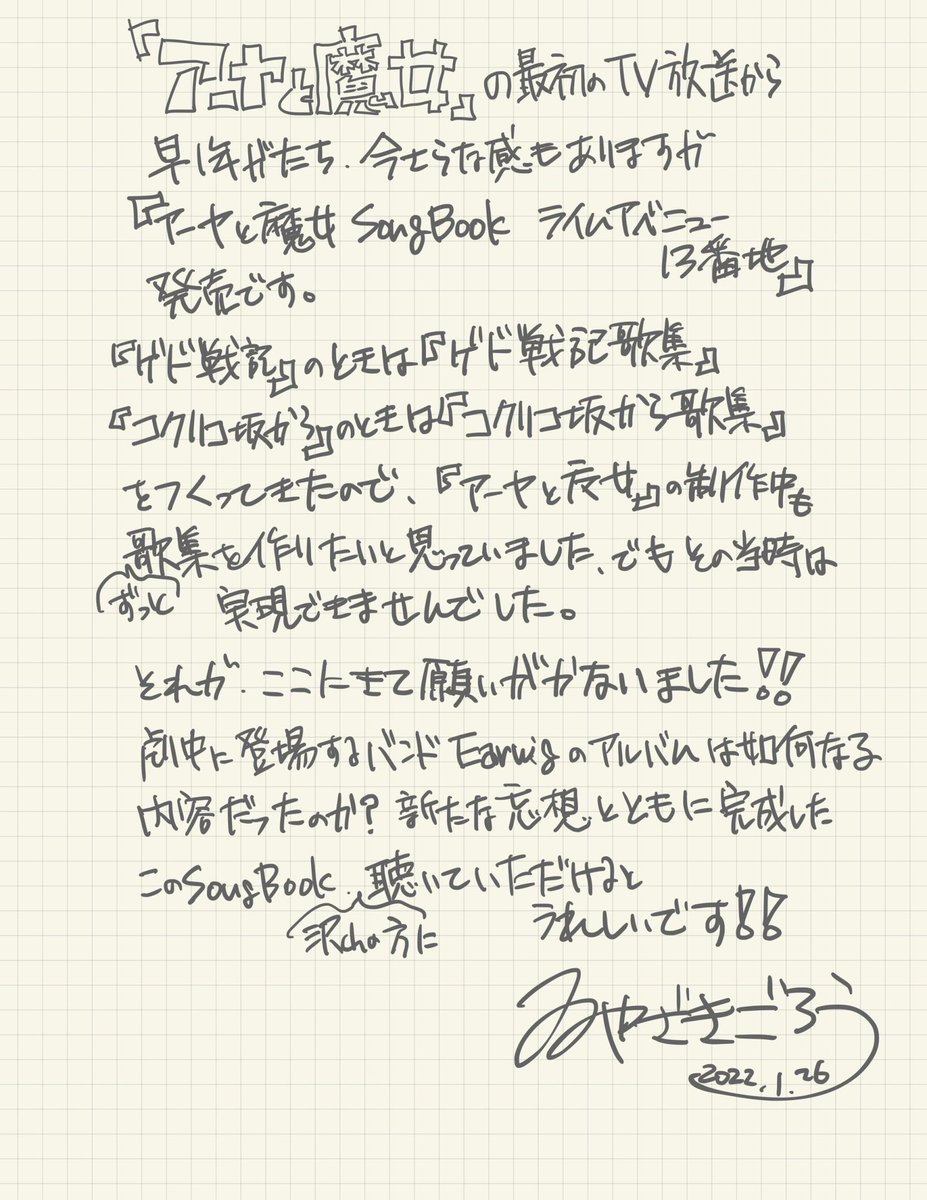 『アーヤと魔女』の最初のTV放送から
早1年がたち、今さらな感もありますが
『アーヤと魔女 SongBook ライムアベニュー
13番地』
発売です。
『ゲド戦記』のときは『ゲド戦記歌集』
『コクリコ坂から』のときは『コクリコ坂から歌集』
をつくってきたので、『アーヤと魔女』の制作中も
歌集を作りたいと思っていました、でもその当時は
ずっと 実現できませんでした。
それが、ここにきて願いがかないました!!
劇中に登場するバンド Earwigのアルバムは如何なる
内容だったのか?新たな妄想とともに完成した
このSongBook、聴いていただけると
沢山の方に うれしいです!!
みやざきごろう
2022.1.26